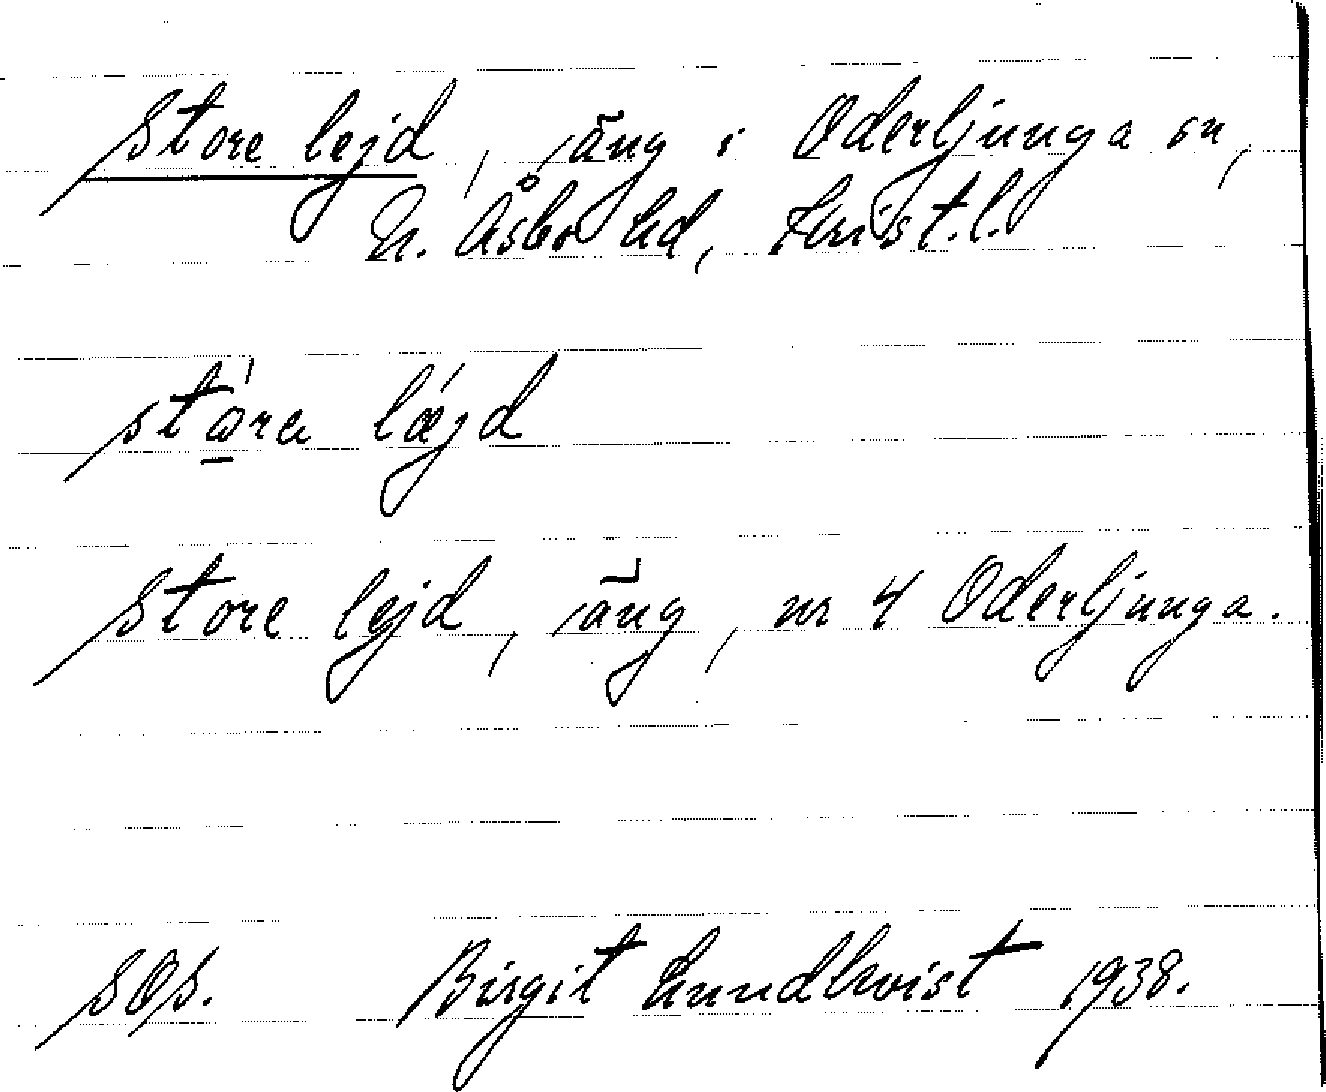 Store lejd, äng i Oderljunga sn,
N. Åsbo hd, Krist. l.
stǻra læjd
Store lejd, äng, nr 4 Oderljunga.
SOS. Birgit Lundkvist 1938.